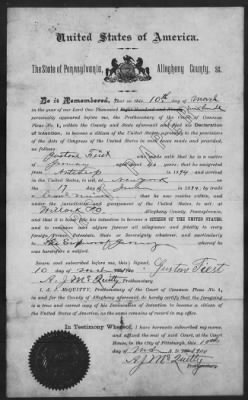 United States of America.
The State of Pennsylvania, Allegheny County, ss.
Be it Remembered, That on the 10th day of March
in the year of our Lord One Thousand Eight Hundred and Ninety
personally appeared before me, the Prothonotary of the Court of Common
Pleas No. 1, within the County and State aforesaid and filed his Declaration
of Intention, to become a citizen of the United States, agreeable to the provisions
of the Acts of Congress of the United States in such case made and provided,
as follows:
Gustav Feist who made oath that he is a native
of Germany years; that he emigrated
from Antwerp in 1894 and arrived
in the United States, to wit, at New York
the 17 day of 1894; that he is
that he now resides within, and
under the jurisdiction and government of the United States, to wit, at
Allegheny County, Pennsylvania,
and that it is his intention to become a CITIZEN OF THE UNITED STATES,
and to renounce and abjure forever all allegiance and fidelity to every
foreign Prince, Potentate, State or Sovereignty whatever, and particularly
to The Emperor of Germany whereof he
was heretofore a subject.
Sworn and subscribed before me,
10 day of Gustav Feist
A. J. McQuitty, Prothonotary
I, A. J. McQUITTY, Prothonotary of the Court of Common Pleas No. 1,
in and for the County of Allegheny aforesaid, do hereby certify that the foregoing
is a true and correct copy of his Declaration of Intention to become a citizen of
the United States, as the same remains of record in my office.
In Testimony Whereof, I have hereunto subscribed my
name, and affixed the seal of said Court, at the Court
House, in the City of Pittsburgh, this 10th
day of 1900
A. J. McQuitty
Prothonotary